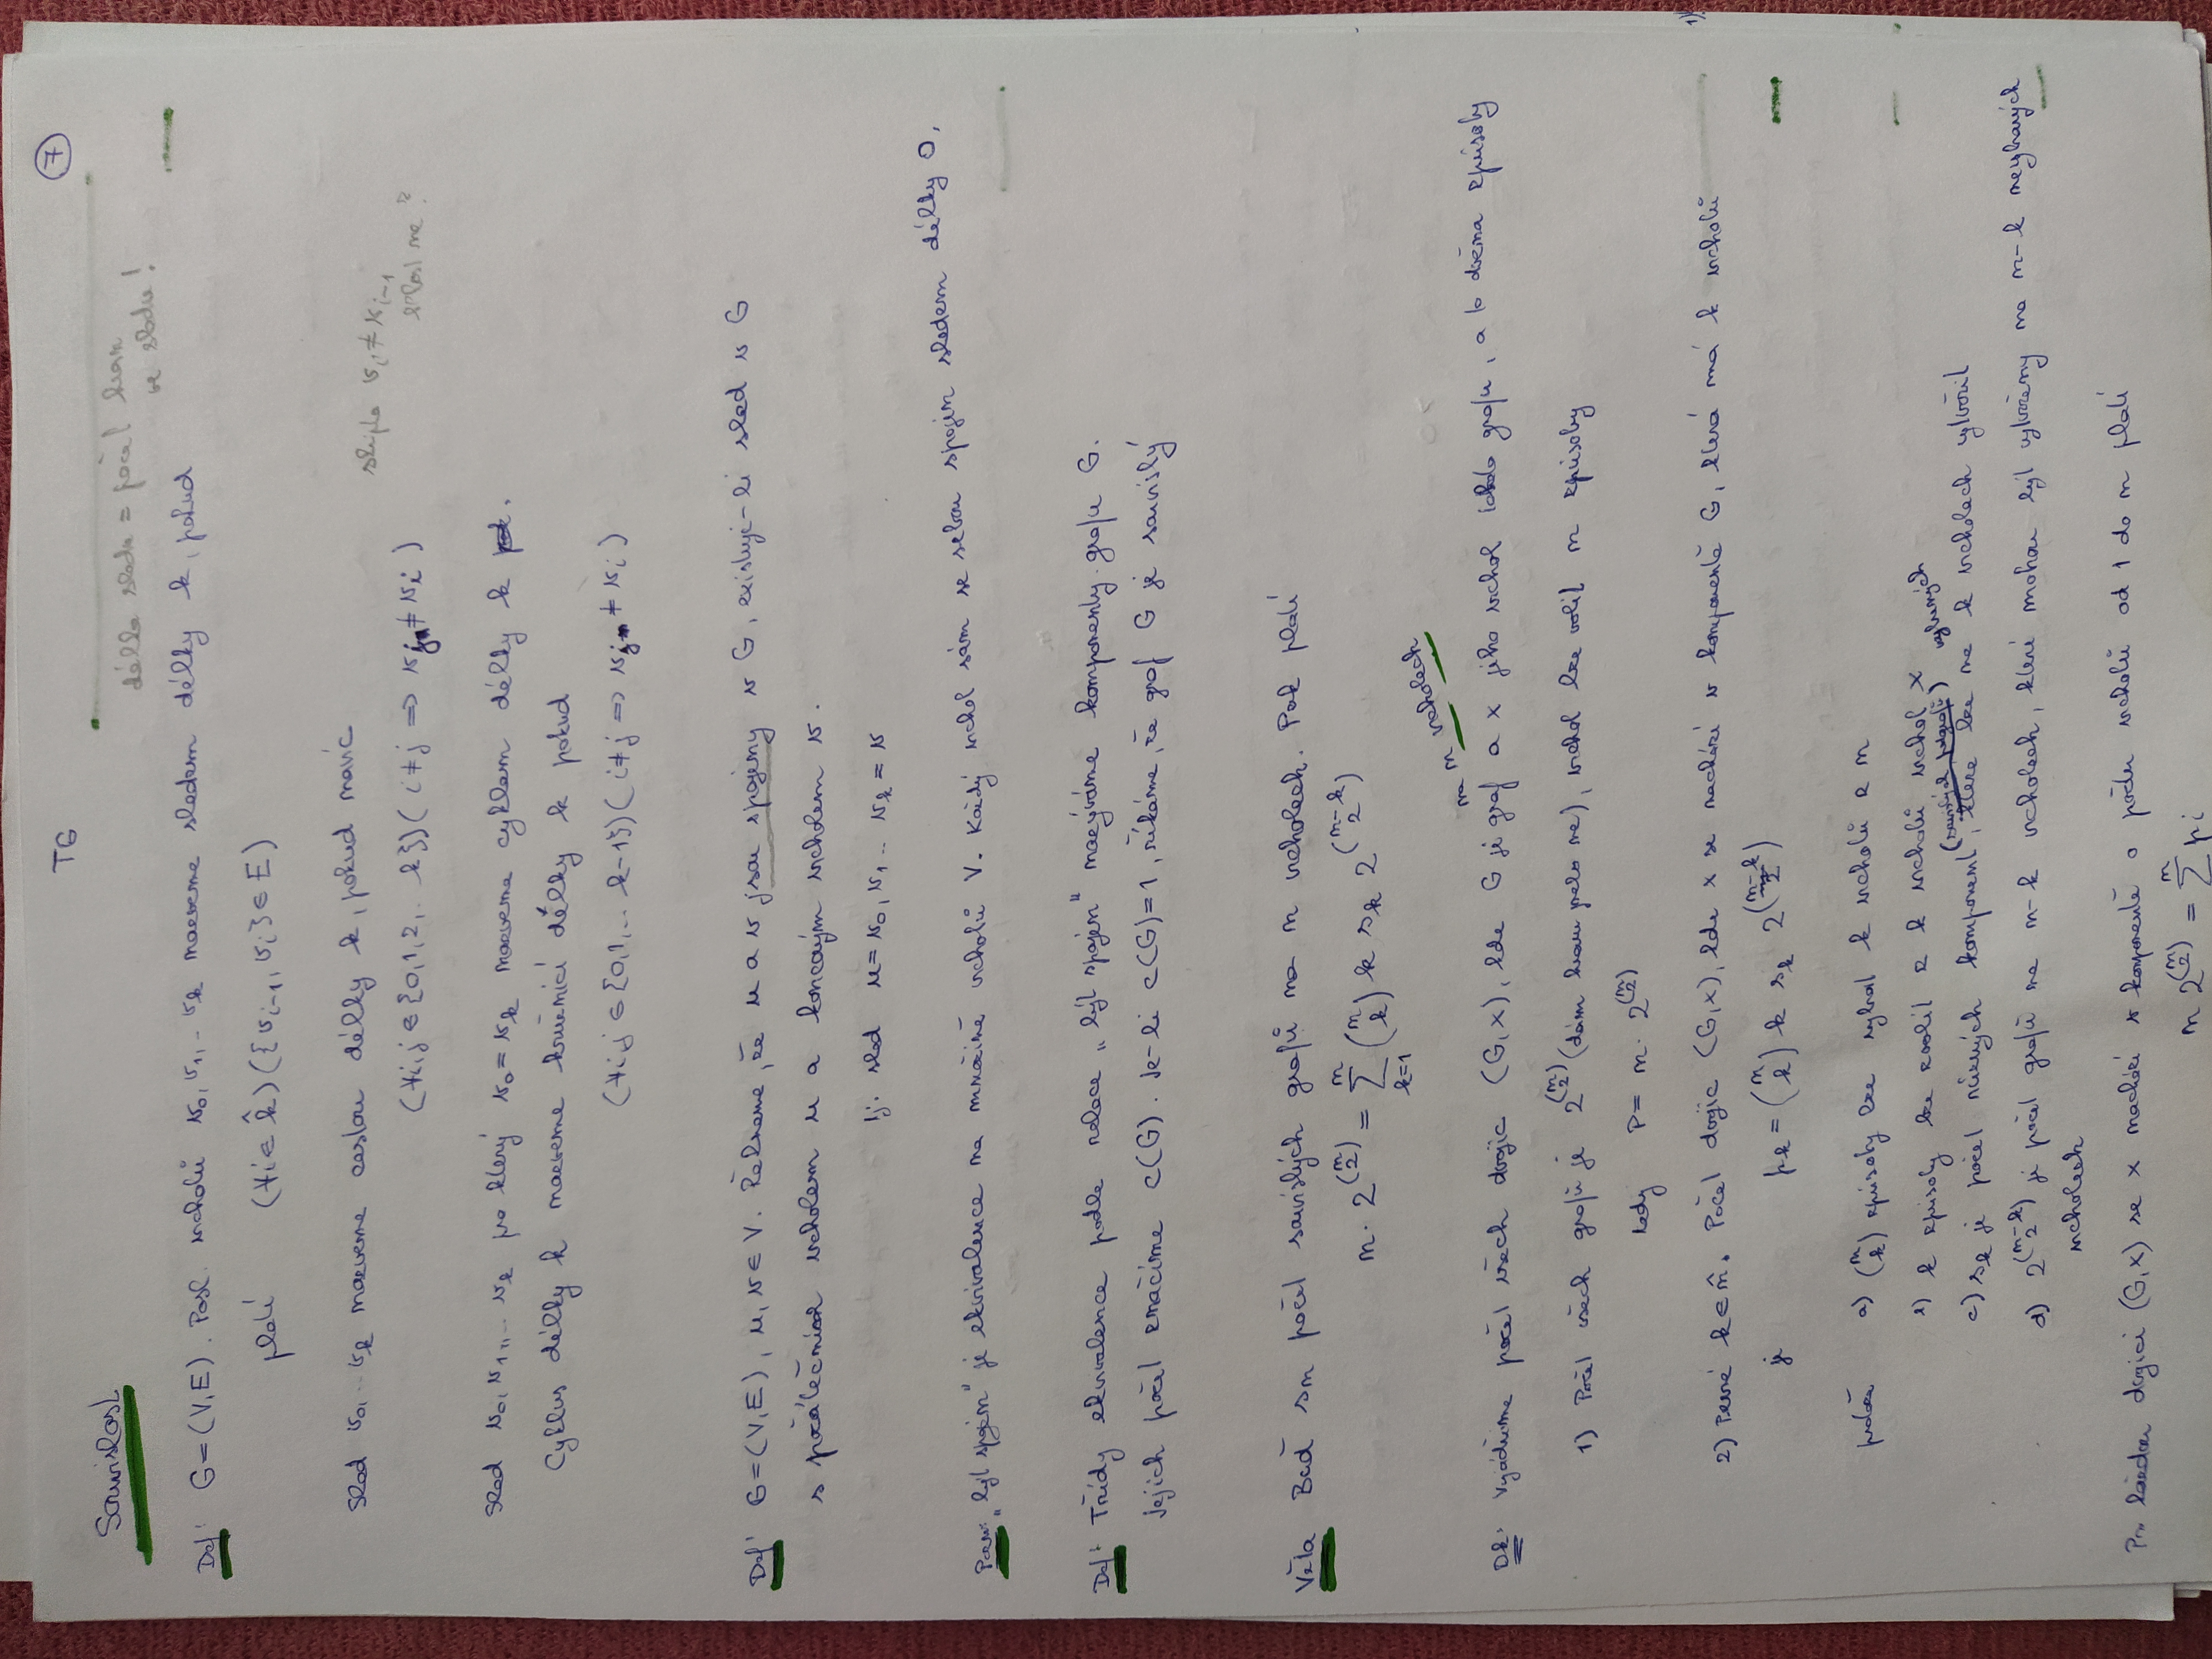 TG
7
Souvislost
délka sledu = počet hran
ve sledu!
Def: G=(V,E). Posl. vrcholů v₀, v₁, .. v_k nazveme sledem délky k, pokud
platí (∀i∈k̂)({v_{i-1}, v_i}∈E)
Sled v₀, .. v_k nazveme cestou délky k, pokud navíc
v_i ≠ v_{i-1}
(∀i,j∈{0,1,2,..k})(i≠j ⇒ v_j ≠ v_i)
Sled v₀, v₁, .. v_k pro který v₀=v_k nazveme cyklem délky k.
Cyklus délky k nazveme kružnicí délky k pokud
(∀i,j∈{0,1,..k-1})(i≠j ⇒ v_j ≠ v_i)
Def: G=(V,E), u,v∈V. Řekneme, že u a v jsou spojeny v G, existuje-li sled v G
s počátečním vrcholem u a koncovým vrcholem v.
tj. sled u=v₀, v₁, .. v_k=v
Pozn: "být spojen" je ekvivalence na množině vrcholů V. Každý vrchol sám se sebou spojen sledem délky 0.
Def: Třídy ekvivalence podle relace "být spojen" nazýváme komponenty grafu G.
Jejich počet značíme c(G). Je-li c(G)=1, říkáme, že graf G je souvislý
Věta Buď s_n počet souvislých grafů na n vrcholech. Pak platí
n · 2^{\binom{n}{2}} = \sum_{k=1}^{n} \binom{n}{k} k s_k 2^{\binom{n-k}{2}}
na n vrcholech
Dk: Vyjádříme počet všech dvojic (G,x), kde G je graf a x jeho vrchol tohoto grafu, a to dvěma způsoby
1) Počet všech grafů je 2^{\binom{n}{2}} (dám hranu nebo ne), vrchol lze volit n způsoby
tedy P = n · 2^{\binom{n}{2}}
2) Pevné k∈n̂. Počet dvojic (G,x), kde x se nachází v komponentě G, která má k vrcholů
je p_k = \binom{n}{k} k s_k 2^{\binom{n-k}{2}}
protože a) \binom{n}{k} způsoby lze vybrat k vrcholů z n
b) k způsoby lze zvolit z k vrcholů vrchol x
c) s_k je počet různých komponent, které lze na k vrcholech vytvořit
vybraných
d) 2^{\binom{n-k}{2}} je počet grafů na n-k vrcholech, které mohou být vytvořeny na n-k nevybraných
vrcholech
Pro každou dvojici (G,x) se x nachází v komponentě o počtu vrcholů od 1 do n platí
n 2^{\binom{n}{2}} = \sum^{n} p_i